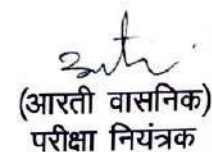 (आरती वासनिक)
परीक्षा नियंत्रक